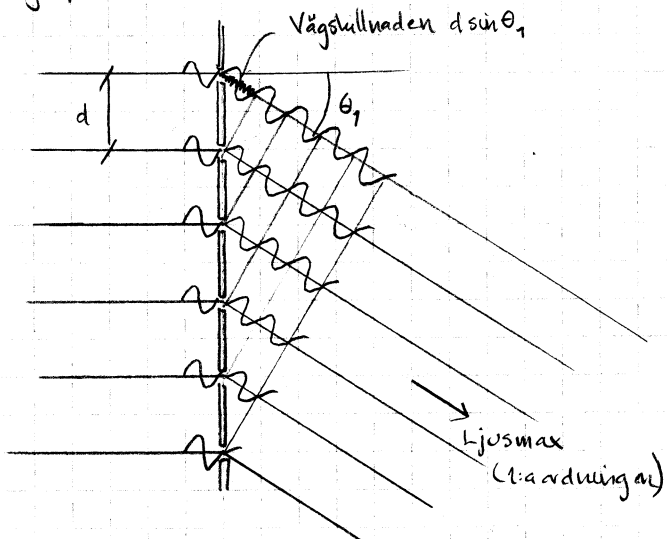 Vägskillnaden d sin θ₁
d
θ₁
Ljusmax
(1:a ordningen)